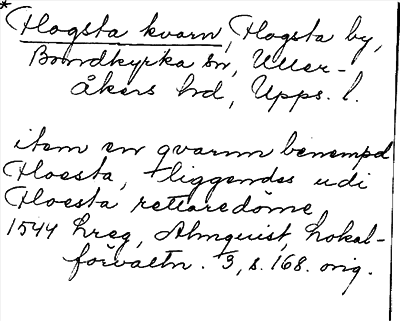 *
Hogsta kvarn, Hogsta by,
Bondkyrka sn, Uller-
åkers hd, Upps. l.
item en qvarnn benempd
Hoesta, liggendes udi
Hoesta rettaredöme
1544 hreg, Almquist, Lokal-
förvaltn. 3, s. 168. orig.